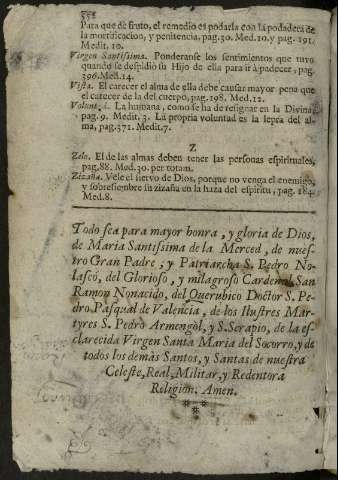 558
Para que dè fruto, el remedio es podarla con la podadera de
la mortificacion, y penitencia, pag.30. Med.10.y pag. 191.
Medit. 10.
Virgen Santissima. Ponderanse los sentimientos que tuvo
quando se despidiò su Hijo de ella para ir à padecer, pag.
396.Med.14.
Vista. El carecer el alma de ella debe causar mayor pena que
el carecer de la del cuerpo, pag.198. Med.12.
Voluntad. La humana, como se ha de resignar en la Divina,
pag.9. Medit. 3. La propria voluntad es la lepra del al-
ma, pag.371. Medit.7.
Z
Zelo. El de las almas deben tener las personas espirituales,
pag.88. Med.30. per totam.
Zizaña. Vele el siervo de Dios, porque no venga el enemigo,
y sobresiembre su zizaña en la haza del espiritu, pag. 184.
Med.8.
Todo sea para mayor honra, y gloria de Dios,
de Maria Santissima de la Merced, de nues-
tro Gran Padre, y Patriarcha S. Pedro No-
lasco, del Glorioso, y milagroso Cardenal San
Ramon Nonacido, del Querubico Doctor S. Pe-
dro Pasqual de Valencia, de los Ilustres Mar-
tyres S. Pedro Armengòl, y S. Serapio, de la es-
clarecida Virgen Santa Maria del Socorro, y de
todos los demàs Santos, y Santas de nuestra
Celeste, Real, Militar, y Redentora
Religion. Amen.